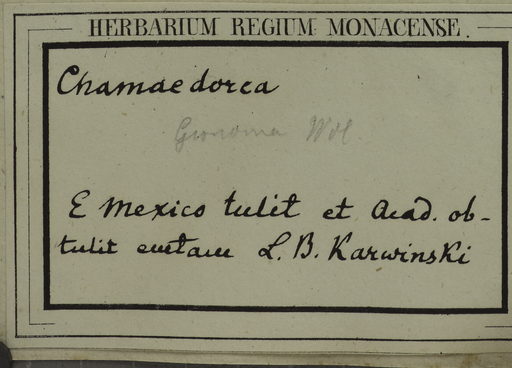 HERBARIUM REGIUM MONACENSE.
Chamaedorea
E Mexico tulit et Acad. ob-
tulit L. B. Karwinski